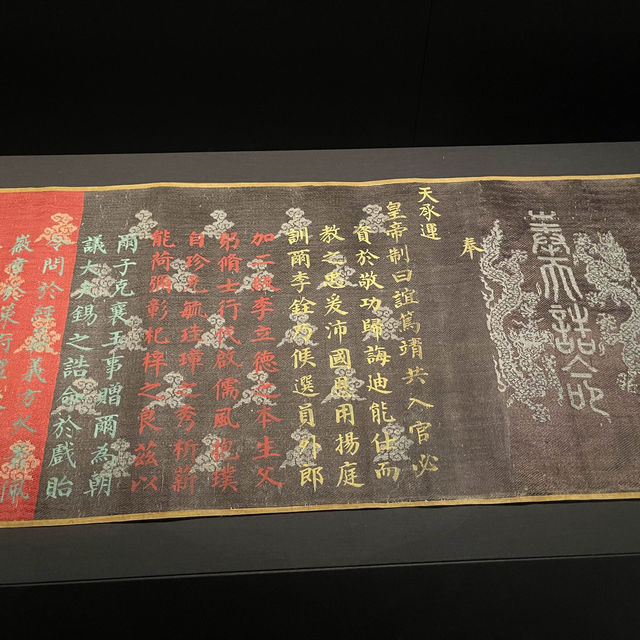 奉天誥命
奉
天承運
皇帝制曰誼篤靖共入官必
資於敬功歸誨迪能仕而
教之忠爰沛國恩用揚庭
訓爾李銓乃候選員外郎
加二級李立德之本生父
躬脩士行代啟儒風抱璞
自珍克毓珪璋之秀析薪
能荷彌彰杞梓之良茲以
爾子克襄王事贈爾為朝
議大夫錫之誥命於戲貽
問於經義方久著佩
章於策